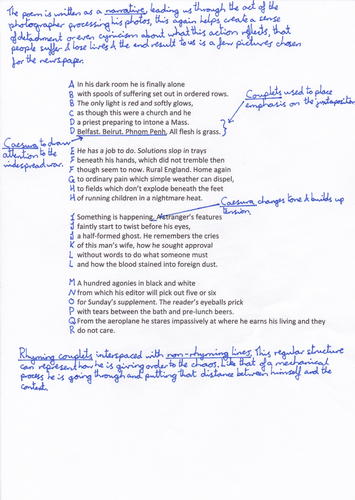 The poem is written as a narrative, leading us through the act of the
photographer processing his photos, this again helps create a sense
of detatchment or even cynicism about what this action reflects, that
people suffer & lose lives & the end result to us is a few pictures chosen
for the newspaper.
Couplets used to place
emphasis on the juxtaposition
A In his dark room he is finally alone
B with spools of suffering set out in ordered rows.
B The only light is red and softly glows,
C as though this were a church and he
D a priest preparing to intone a Mass.
D Belfast. Beirut. Phnom Penh. All flesh is grass.
Caesura to draw
attention to the
widespread war.
E He has a job to do. Solutions slop in trays
F beneath his hands, which did not tremble then
F though seem to now. Rural England. Home again
G to ordinary pain which simple weather can dispel,
H to fields which don't explode beneath the feet
H of running children in a nightmare heat.
Caesura changes tone & builds up
tension
I Something is happening. A stranger's features
J faintly start to twist before his eyes,
J a half-formed ghost. He remembers the cries
K of this man's wife, how he sought approval
L without words to do what someone must
L and how the blood stained into foreign dust.
M A hundred agonies in black and white
N from which his editor will pick out five or six
O for Sunday's supplement. The reader's eyeballs prick
P with tears between the bath and pre-lunch beers.
Q From the aeroplane he stares impassively at where he earns his living and they
R do not care.
Rhyming couplets interspaced with non-rhyming lines. This regular structure
can represent how he is giving order to the chaos. Like that of a mechanical
process he is going though and putting that distance between himself and the
content.